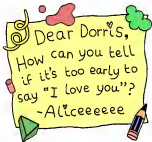 Dear Dorris,
How can you tell
if it's too early to
say "I love you"?
-Aliceeeeee